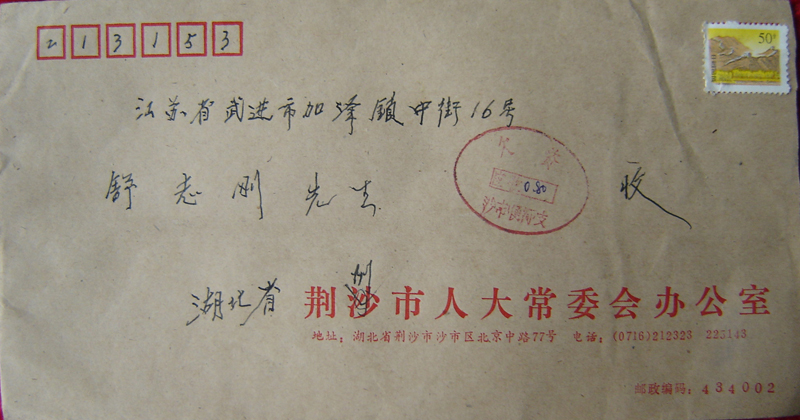 213153
50分
江苏省武进市加泽镇中街16号
0.80
舒志刚先生 收
州
湖北省 荆沙市人大常委会办公室
地址：湖北省荆沙市沙市区北京中路77号 电话：(0716)212323 223143
邮政编码：434002